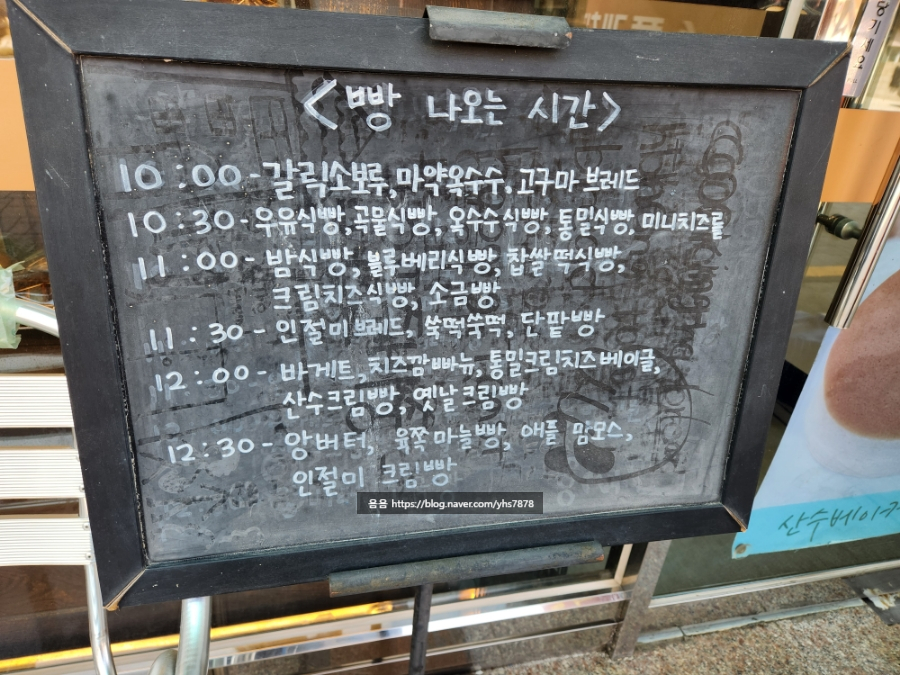 <빵 나오는 시간>
10:00-갈릭소보루,마약옥수수.고구마브레드
10:30-우유식빵,곡물식빵,옥수수식빵,통밀식빵,미니치즈롤
11:00- 밤식빵,블루베리식빵,찹쌀떡식빵,
크림치즈식빵, 소금빵
11:30- 인절미브레드, 쑥떡쑥떡, 단팥빵
12:00- 바게트,치즈깜빠뉴,통밀크림치즈베이글,
산수크림빵,옛날크림빵
12:30- 앙버터, 육쪽마늘빵, 애플 맘모스,
인절미 크림빵
음음 https://blog.naver.com/yhs7878
산수베이커